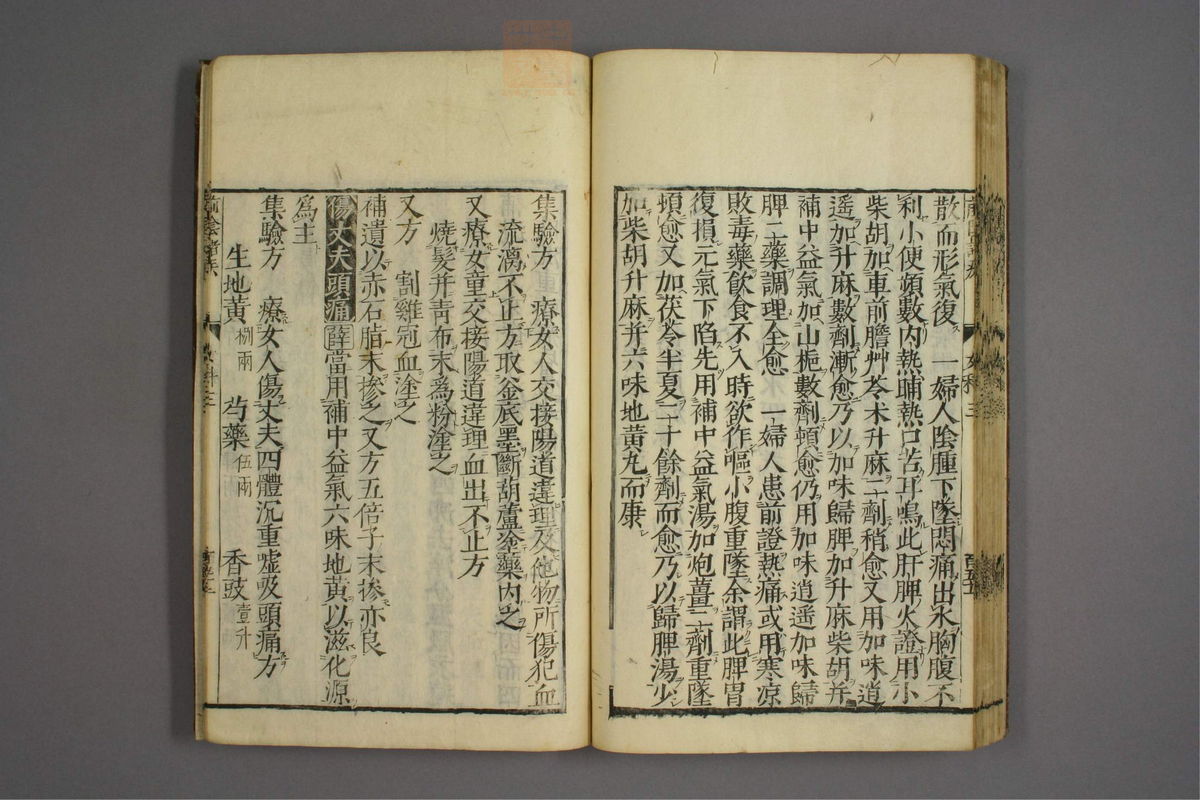 散而形氣復 一婦人陰腫下墜悶痛出水胸腹不
利小便頻數内熱晡熱口苦耳鳴此肝脾火證用小
柴胡加車前膽艸苓朮升麻二劑稍愈又用加味逍
遥加升麻數劑漸愈乃以加味歸脾加升麻柴胡并
補中益氣加山梔數劑頓愈仍用加味逍遥加味歸
脾二藥調理全愈 一婦人患前證熱痛或用寒凉
敗毒藥飲食不入時欲作嘔小腹重墜余謂此脾胃
復損元氣下陷先用補中益氣湯加炮薑二劑重墜
頓愈又加茯苓半夏二十餘劑而愈乃以歸脾湯少
加柴胡升麻并六味地黄丸而康
集驗方 療女人交接陽道違理及他物所傷犯血
流漓不止方取釜底墨斷胡蘆塗藥内之
又療女童交接陽道違理血出不止方
燒髮并青布末爲粉塗之
又方 割雞冠血塗之
補遺以赤石脂末摻之又方五倍子末摻亦良
傷丈夫頭痛 薛當用補中益氣六味地黄以滋化源
爲主
集驗方 療女人傷丈夫四體沉重嘘吸頭痛方
生地黄 捌兩 芍藥 伍兩 香豉 壹升